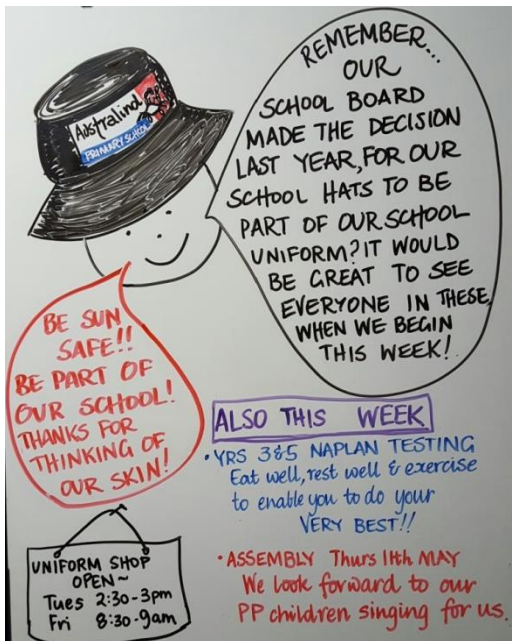 Australind
PRIMARY SCHOOL
REMEMBER...
OUR
SCHOOL BOARD
MADE THE DECISION
LAST YEAR, FOR OUR
SCHOOL HATS TO BE
PART OF OUR SCHOOL
UNIFORM? IT WOULD
BE GREAT TO SEE
EVERYONE IN THESE,
WHEN WE BEGIN
THIS WEEK!
BE SUN
SAFE!!
BE PART OF
OUR SCHOOL!
THANKS FOR
THINKING OF
OUR SKIN!
ALSO THIS WEEK
• YRS 3&5 NAPLAN TESTING
Eat well, rest well & exercise
to enable you to do your
VERY BEST!!
• ASSEMBLY Thurs 11th MAY
We look forward to our
PP children singing for us.
UNIFORM SHOP
OPEN~
Tues 2:30-3pm
Fri 8:30-9am